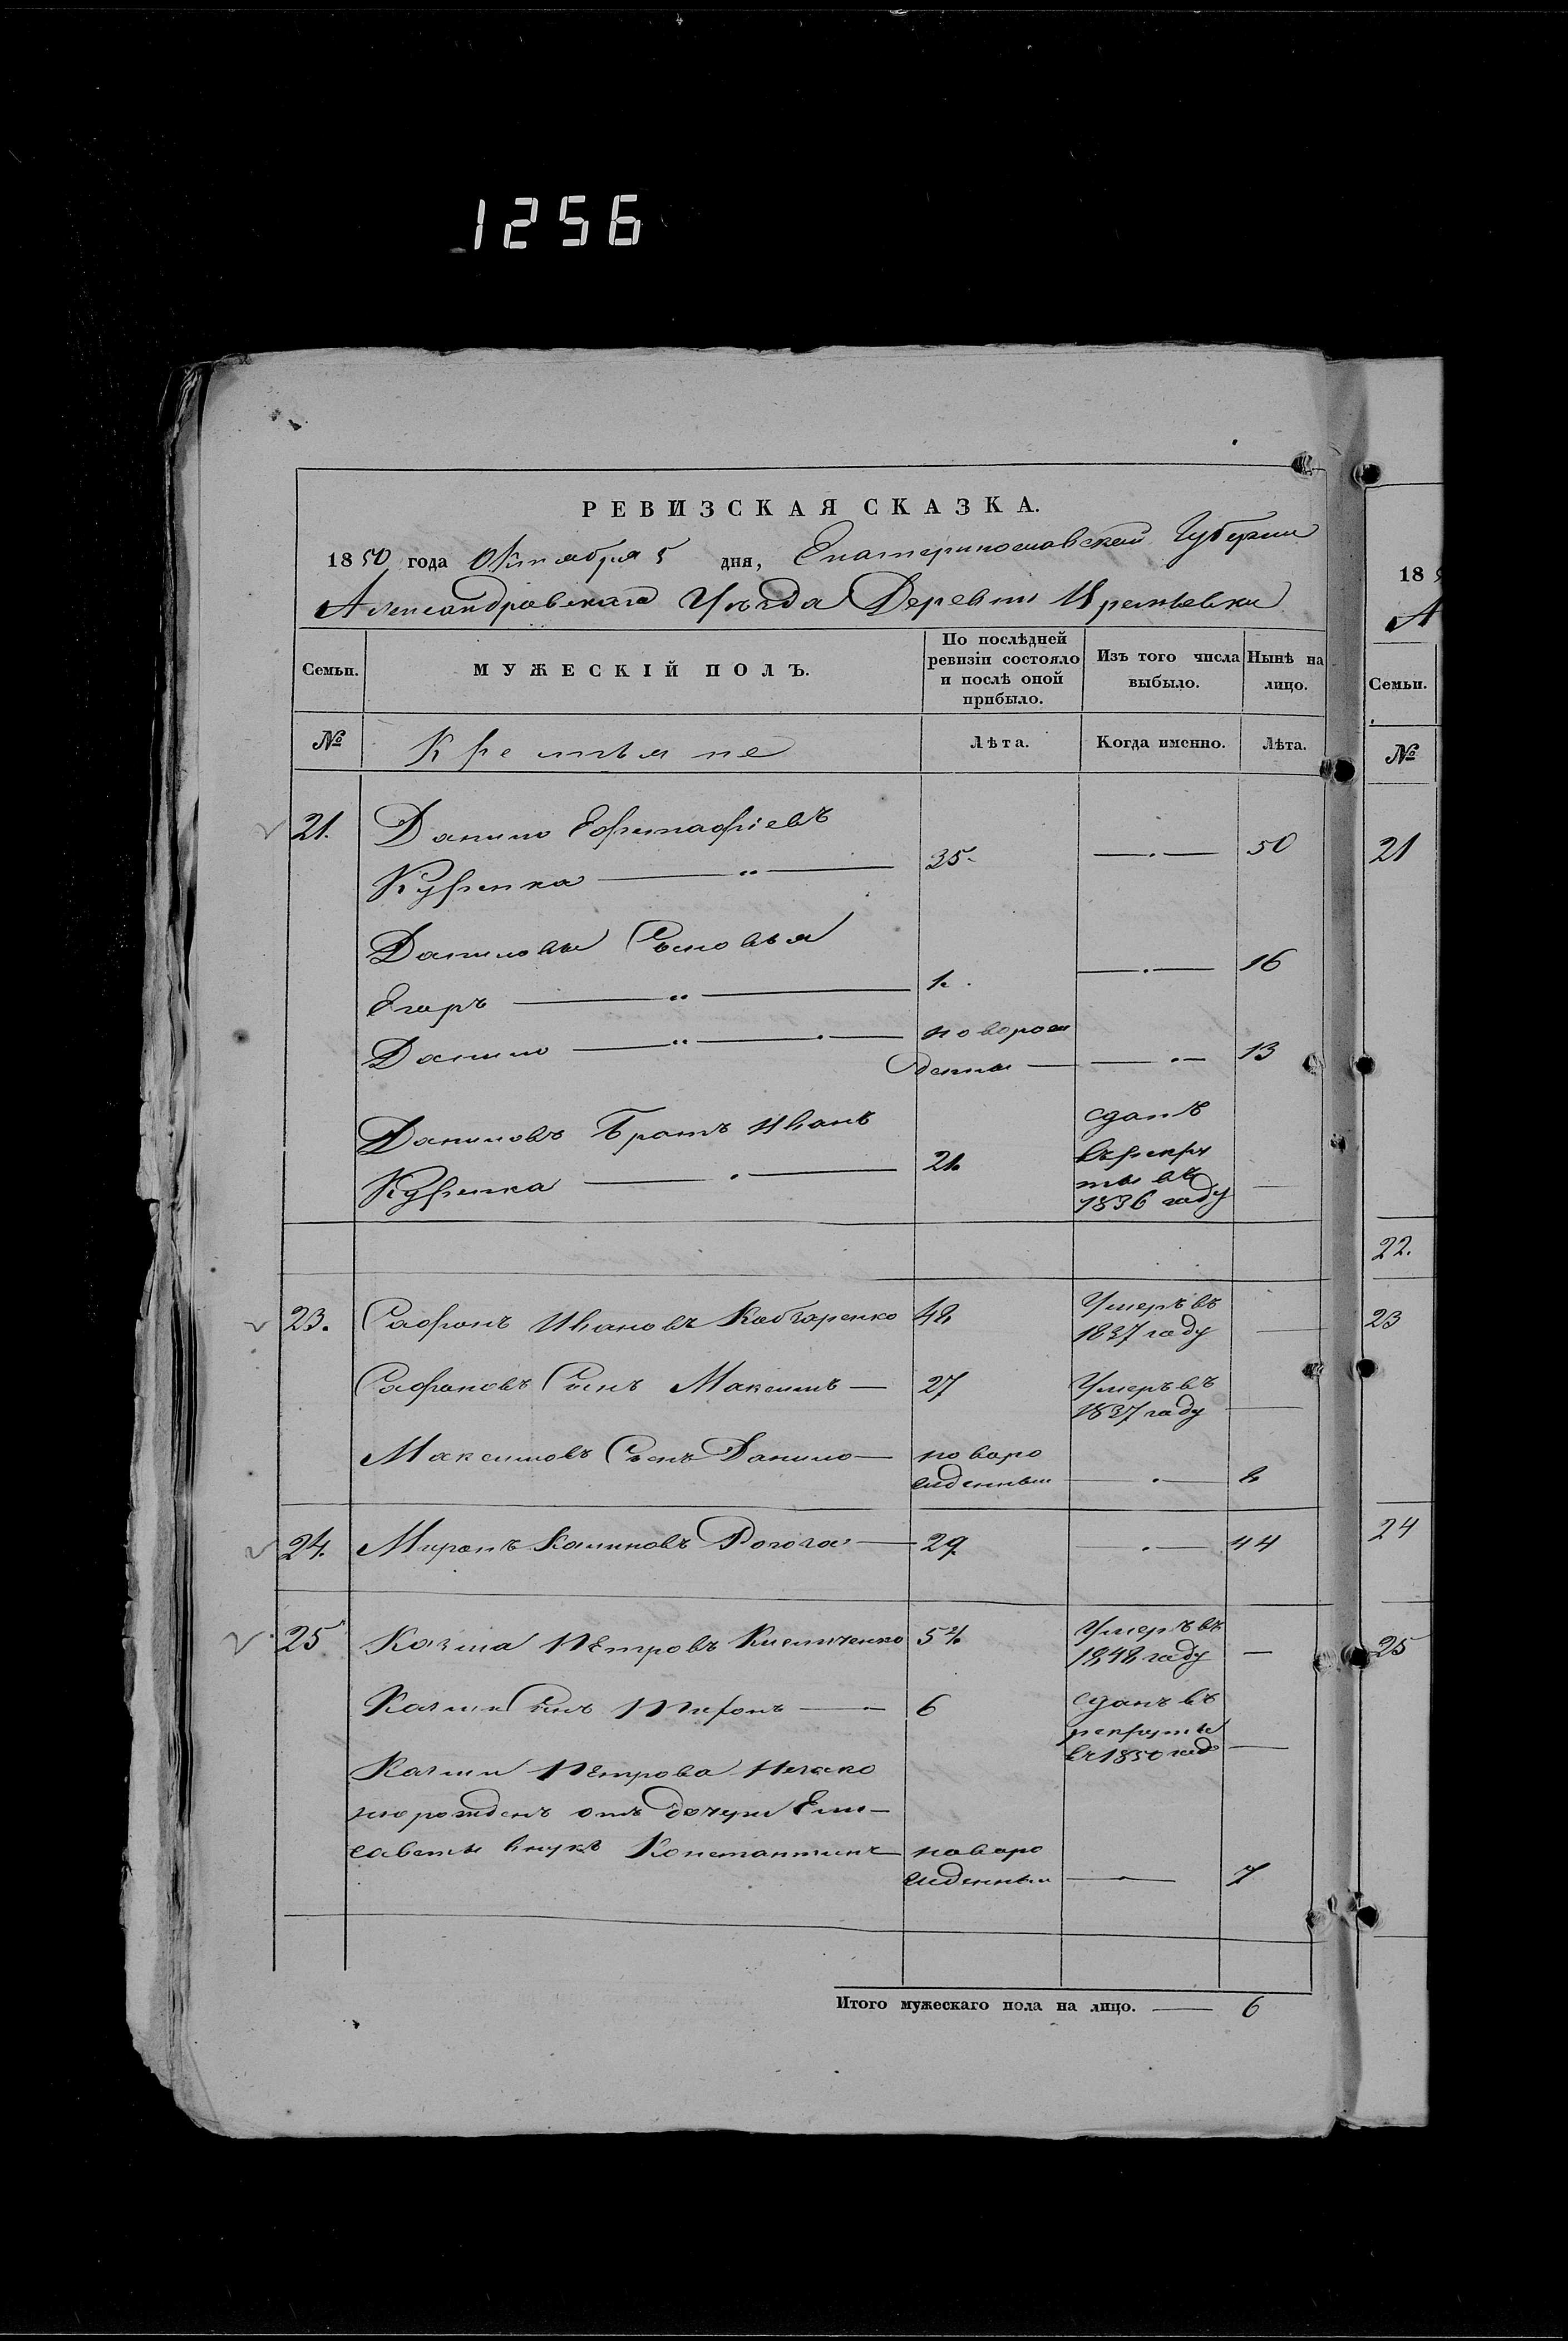 1256
РЕВИЗСКАЯ СКАЗКА.
1850 года Октября 5 дня, Екатеринославской Губернии
Александровскаго Уѣзда Деревни
18
А
Семьи. МУЖЕСКІЙ ПОЛЪ. По послѣдней ревизіи состояло и послѣ оной прибыло. Изъ того числа выбыло. Нынѣ на лицо. Семьи.
№ Крестьяне Лѣта. Когда именно. Лѣта. №
21. Данило
35. 50 21
Даниловы Сыновья
Егоръ 1. 16
Данило новорож
денны 13
Даниловъ Братъ Иванъ сданъ
21. въ рекру
ты въ
1836 году
22.
23. Сафронъ Ивановъ 48 Умеръ въ 23
1837 году
Сафроновъ Сынъ Максимъ 27 Умеръ въ
1837 году
Максимовъ Сынъ Данило новоро
жденный
24. Миронъ Калиновъ 29 44 24
25 Козма Петровъ 5 Умеръ въ 25
1848 году
Козми Сынъ 6 сданъ въ
рекруты
въ 1850 году
Козми Петрова незако
но рожденъ отъ дочери Ели-
саветы внукъ Константинъ новоро
жденный 7
Итого мужескаго пола на лицо. 6